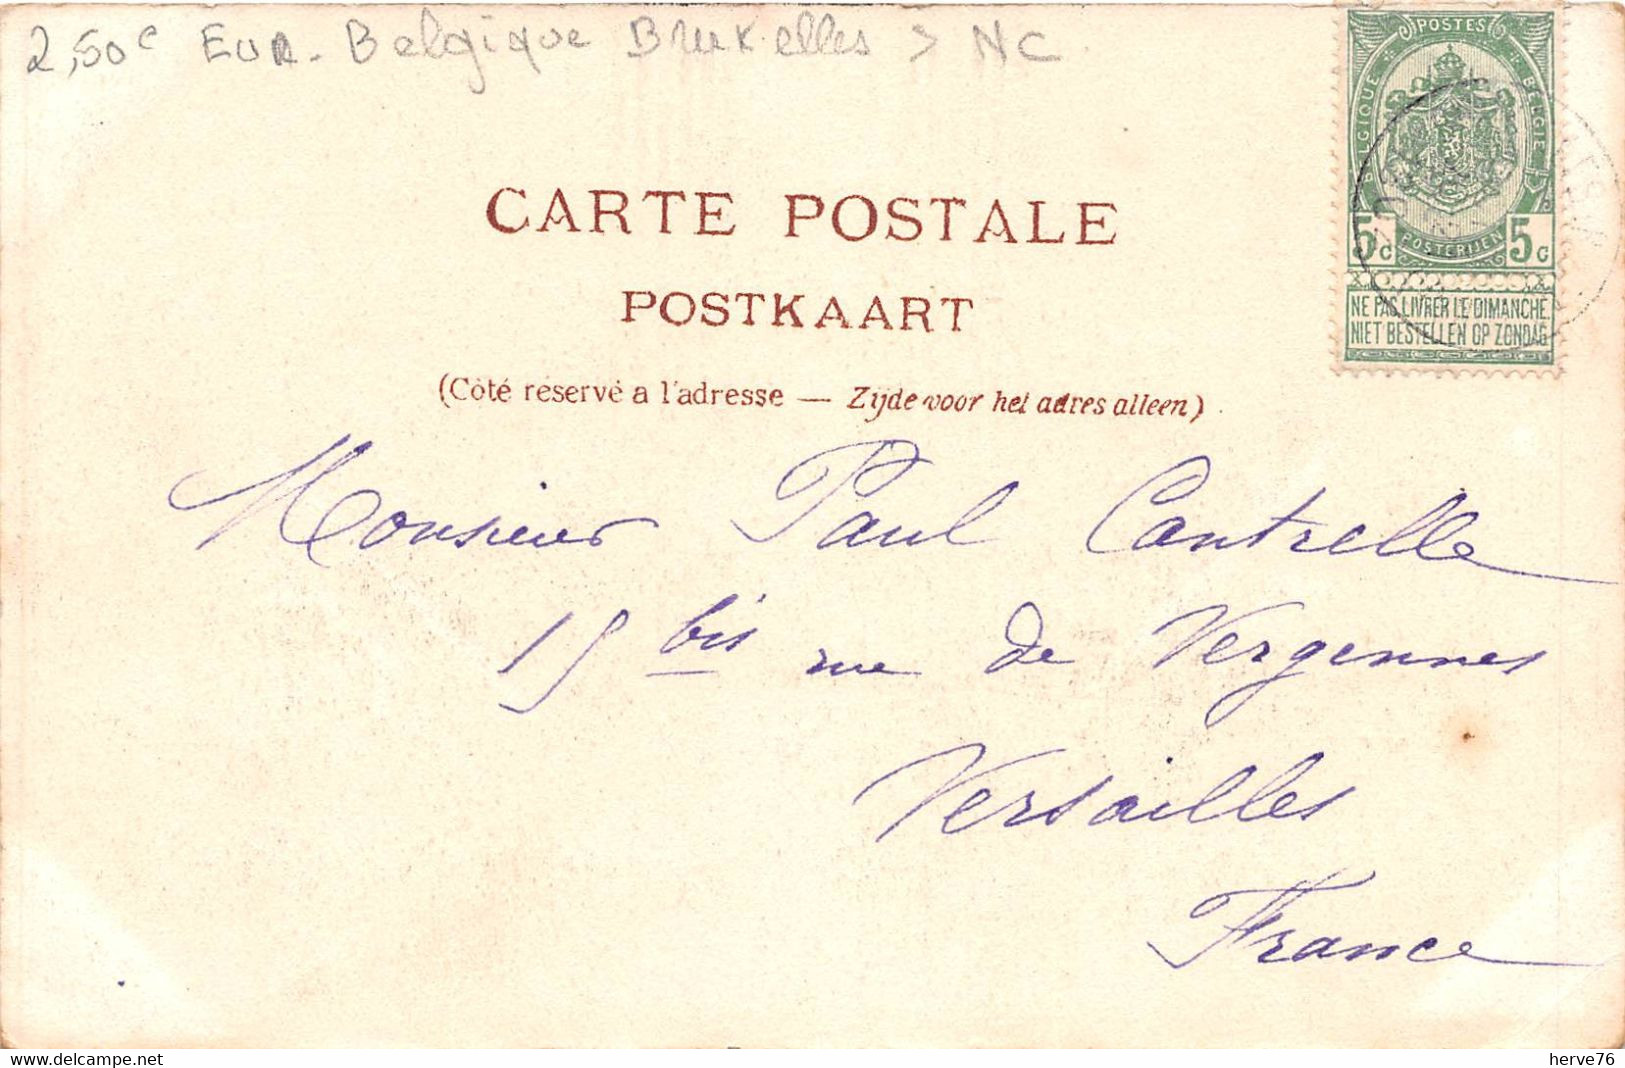 2,50€ EUR. Belgique Bruxelles > NC
POSTES
BELGIQUE BELGIE
5c POSTERIJEN 5c
NE PAS LIVRER LE DIMANCHE
NIET BESTELLEN OP ZONDAG
CARTE POSTALE
POSTKAART
(Côté réservé a l'adresse — Zijde voor het adres alleen)
Monsieur Paul Cantrelle
15 bis rue de Vergennes
Versailles
France
www.delcampe.net
herve76